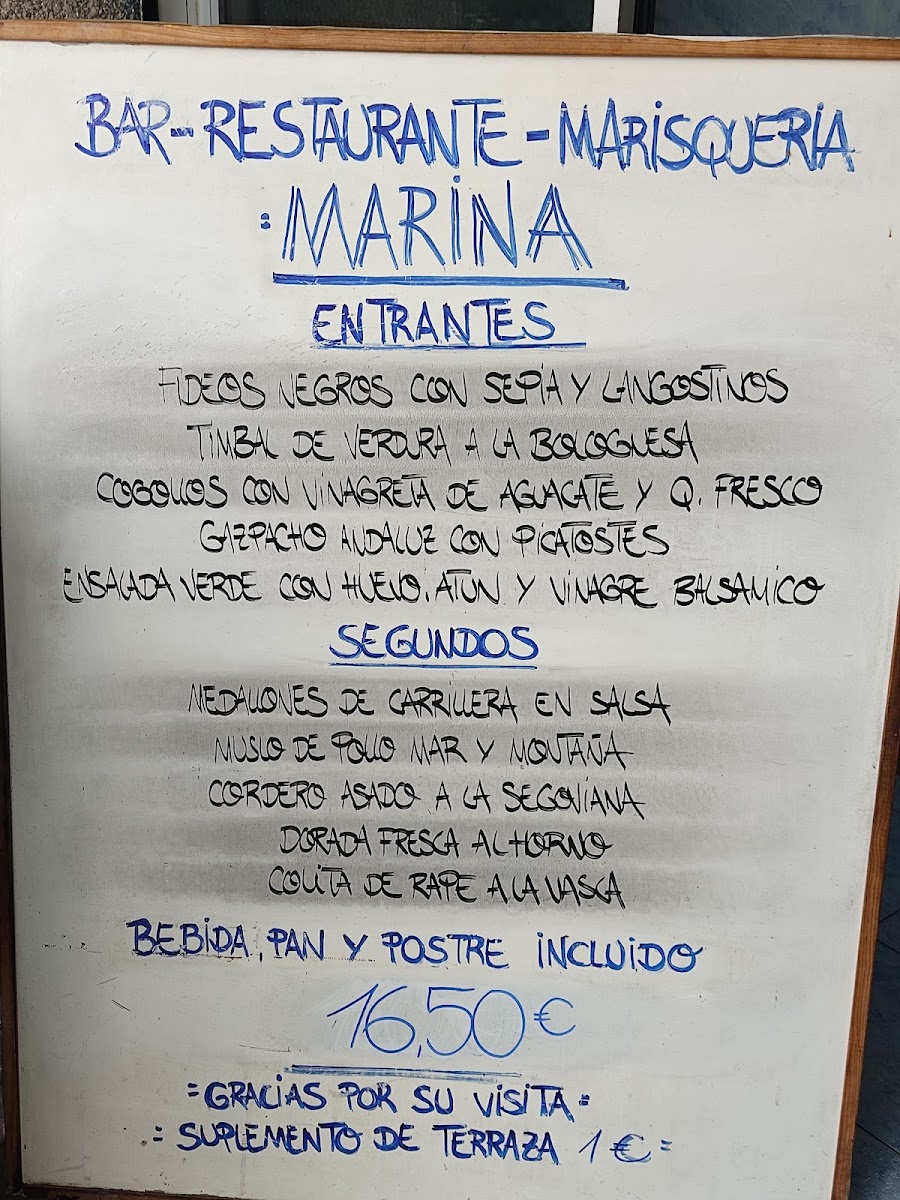 BAR-RESTAURANTE-MARISQUERIA
:MARINA
ENTRANTES
FIDEOS NEGROS CON SEPIA Y LANGOSTINOS
TIMBAL DE VERDURA A LA BOLOGNESA
COGOLLOS CON VINAGRETA DE AGUACATE Y Q. FRESCO
GAZPACHO ANDALUZ CON PICATOSTES
ENSALADA VERDE CON HUEVO, ATUN Y VINAGRE BALSAMICO
SEGUNDOS
MEDALLONES DE CARRILLERA EN SALSA
MUSLO DE POLLO MAR Y MONTAÑA
CORDERO ASADO A LA SEGOVIANA
DORADA FRESCA AL HORNO
COLITA DE RAPE A LA VASCA
BEBIDA, PAN Y POSTRE INCLUIDO
16,50€
=GRACIAS POR SU VISITA=
=SUPLEMENTO DE TERRAZA 1€=